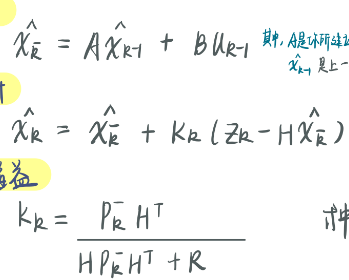 x̂_k̄ = A x̂_{k-1} + B u_{k-1} 其中, A是
x̂_{k-1} 是上一
x̂_k = x̂_k̄ + K_k ( z_k - H x̂_k̄ )
益
K_k = P_k⁻ Hᵀ
H P_k⁻ Hᵀ + R